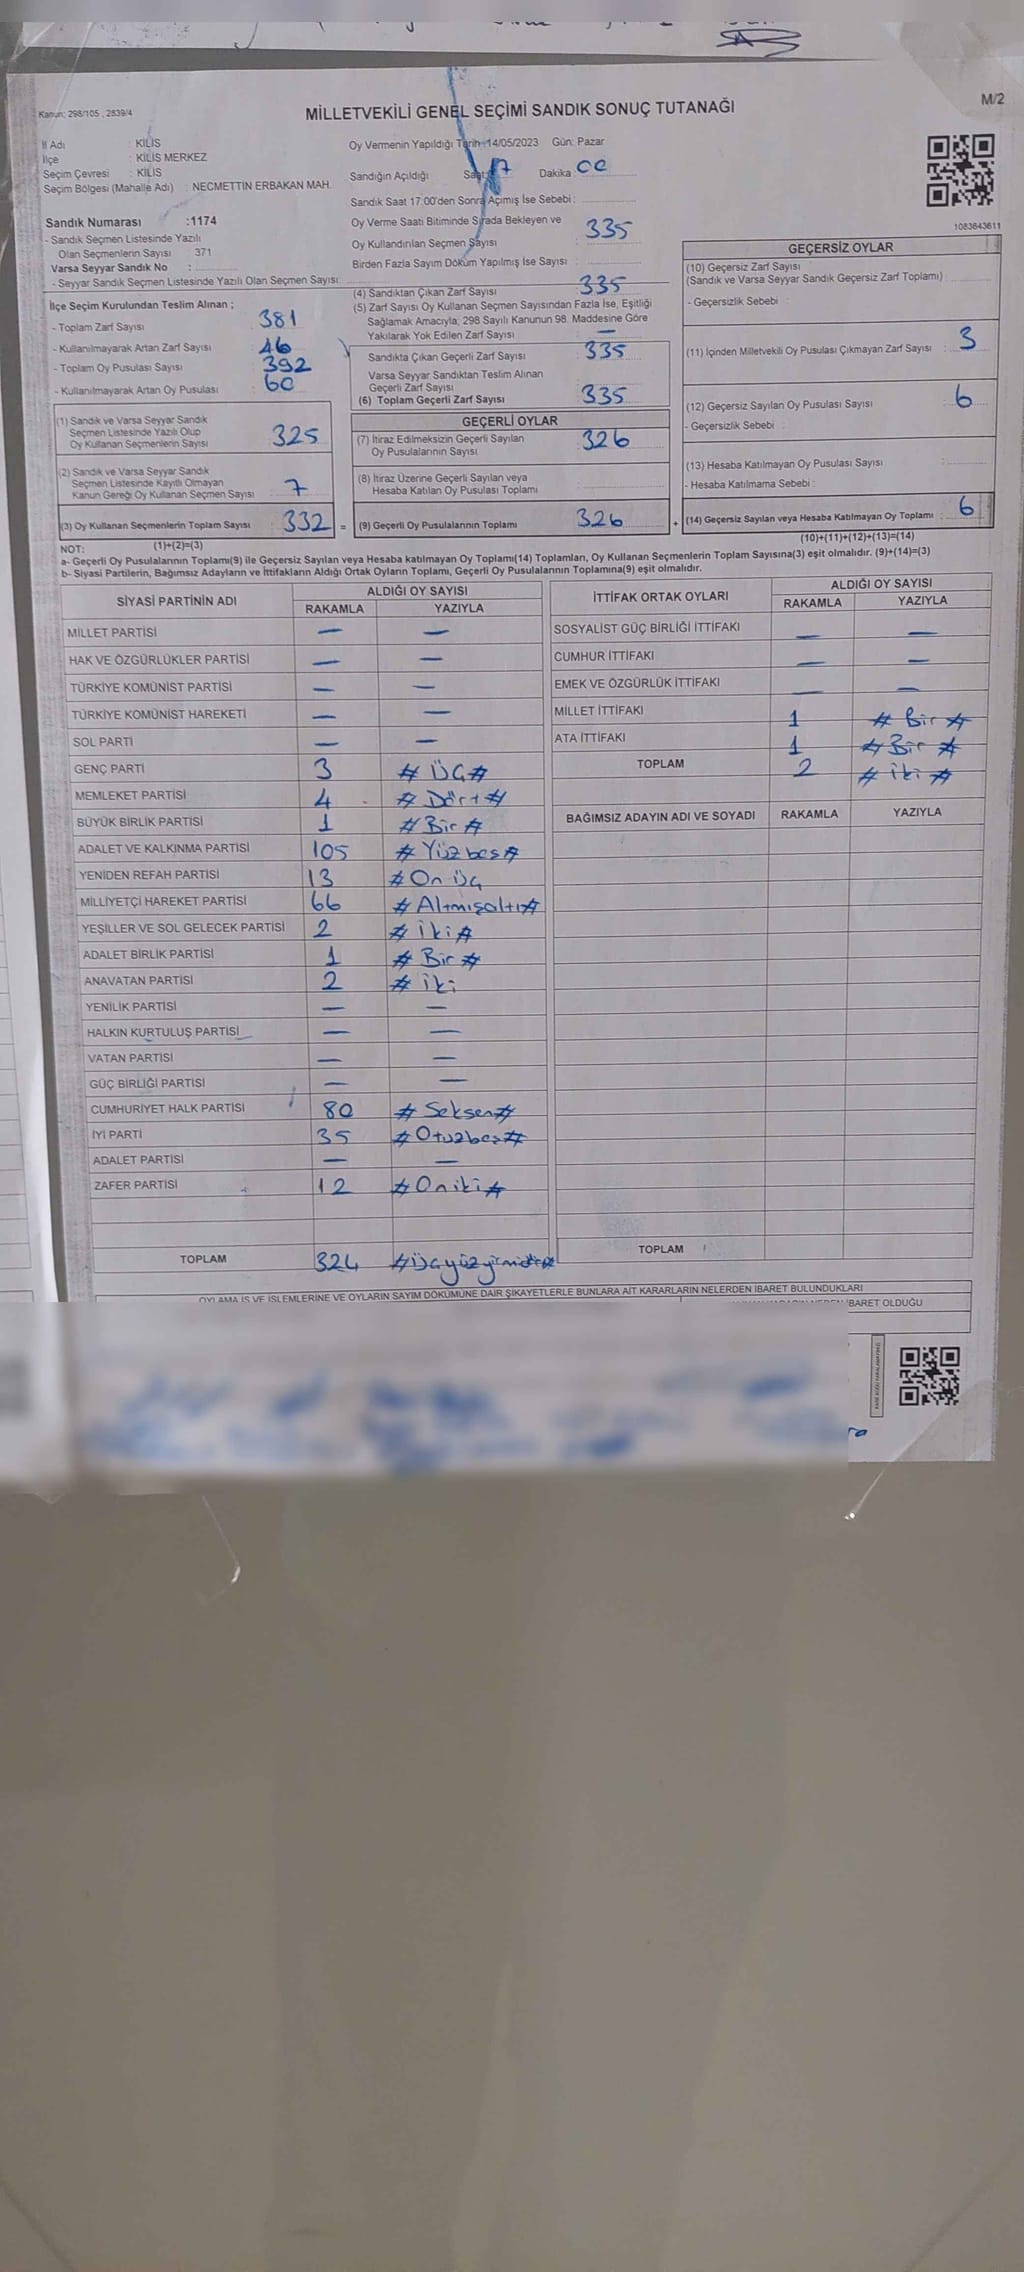 M/2
Kanun; 298/105 ; 2839/4
MİLLETVEKİLİ GENEL SEÇİMİ SANDIK SONUÇ TUTANAĞI
İl Adı : KİLİS
İlçe : KİLİS MERKEZ
Seçim Çevresi : KİLİS
Seçim Bölgesi (Mahalle Adı) : NECMETTİN ERBAKAN MAH.
Sandık Numarası :1174
- Sandık Seçmen Listesinde Yazılı
Olan Seçmenlerin Sayısı 371
Varsa Seyyar Sandık No :
- Seyyar Sandık Seçmen Listesinde Yazılı Olan Seçmen Sayısı:
Oy Vermenin Yapıldığı Tarih :14/05/2023 Gün: Pazar
Sandığın Açıldığı Saat: 17 Dakika: 00
Sandık Saat 17:00'den Sonra Açılmış İse Sebebi:
Oy Verme Saati Bitiminde Sırada Bekleyen ve
Oy Kullandırılan Seçmen Sayısı : 335
Birden Fazla Sayım Döküm Yapılmış İse Sayısı :
1083643611
İlçe Seçim Kurulundan Teslim Alınan ;
- Toplam Zarf Sayısı : 381
- Kullanılmayarak Artan Zarf Sayısı : 46
- Toplam Oy Pusulası Sayısı : 392
- Kullanılmayarak Artan Oy Pusulası : 60
(1) Sandık ve Varsa Seyyar Sandık
Seçmen Listesinde Yazılı Olup
Oy Kullanan Seçmenlerin Sayısı 325
(2) Sandık ve Varsa Seyyar Sandık
Seçmen Listesinde Kayıtlı Olmayan
Kanun Gereği Oy Kullanan Seçmen Sayısı 7
(3) Oy Kullanan Seçmenlerin Toplam Sayısı 332 =
(1)+(2)=(3)
(4) Sandıktan Çıkan Zarf Sayısı 335
(5) Zarf Sayısı Oy Kullanan Seçmen Sayısından Fazla İse, Eşitliği
Sağlamak Amacıyla; 298 Sayılı Kanunun 98. Maddesine Göre
Yakılarak Yok Edilen Zarf Sayısı : —
Sandıkta Çıkan Geçerli Zarf Sayısı : 335
Varsa Seyyar Sandıktan Teslim Alınan
Geçerli Zarf Sayısı
(6) Toplam Geçerli Zarf Sayısı : 335
GEÇERLİ OYLAR
(7) İtiraz Edilmeksizin Geçerli Sayılan
Oy Pusulalarının Sayısı 326
(8) İtiraz Üzerine Geçerli Sayılan veya
Hesaba Katılan Oy Pusulası Toplamı
(9) Geçerli Oy Pusulalarının Toplamı 326 +
GEÇERSİZ OYLAR
(10) Geçersiz Zarf Sayısı
(Sandık ve Varsa Seyyar Sandık Geçersiz Zarf Toplamı) :
- Geçersizlik Sebebi :
(11) İçinden Milletvekili Oy Pusulası Çıkmayan Zarf Sayısı : 3
(12) Geçersiz Sayılan Oy Pusulası Sayısı : 6
- Geçersizlik Sebebi :
(13) Hesaba Katılmayan Oy Pusulası Sayısı :
- Hesaba Katılmama Sebebi :
(14) Geçersiz Sayılan veya Hesaba Katılmayan Oy Toplamı : 6
(10)+(11)+(12)+(13)=(14)
NOT:
a- Geçerli Oy Pusulalarının Toplamı(9) ile Geçersiz Sayılan veya Hesaba katılmayan Oy Toplamı(14) Toplamları, Oy Kullanan Seçmenlerin Toplam Sayısına(3) eşit olmalıdır. (9)+(14)=(3)
b- Siyasi Partilerin, Bağımsız Adayların ve İttifakların Aldığı Ortak Oyların Toplamı, Geçerli Oy Pusulalarının Toplamına(9) eşit olmalıdır.
SİYASİ PARTİNİN ADI ALDIĞI OY SAYISI
RAKAMLA YAZIYLA
MİLLET PARTİSİ — —
HAK VE ÖZGÜRLÜKLER PARTİSİ — —
TÜRKİYE KOMÜNİST PARTİSİ — —
TÜRKİYE KOMÜNİST HAREKETİ — —
SOL PARTİ — —
GENÇ PARTİ 3 # ÜÇ#
MEMLEKET PARTİSİ 4 # Dört#
BÜYÜK BİRLİK PARTİSİ 1 # Bir #
ADALET VE KALKINMA PARTİSİ 105 # Yüzbeş#
YENİDEN REFAH PARTİSİ 13 # On üç
MİLLİYETÇİ HAREKET PARTİSİ 66 # Altmışaltı#
YEŞİLLER VE SOL GELECEK PARTİSİ 2 # İki #
ADALET BİRLİK PARTİSİ 1 # Bir #
ANAVATAN PARTİSİ 2 # iki
YENİLİK PARTİSİ — —
HALKIN KURTULUŞ PARTİSİ — —
VATAN PARTİSİ — —
GÜÇ BİRLİĞİ PARTİSİ — —
CUMHURİYET HALK PARTİSİ 80 # Seksen#
İYİ PARTİ 35 # Otuzbeş#
ADALET PARTİSİ — —
ZAFER PARTİSİ 12 # Oniki #
TOPLAM 324 #Üçyüzyirmidört#
İTTİFAK ORTAK OYLARI ALDIĞI OY SAYISI
RAKAMLA YAZIYLA
SOSYALİST GÜÇ BİRLİĞİ İTTİFAKI — —
CUMHUR İTTİFAKI — —
EMEK VE ÖZGÜRLÜK İTTİFAKI — —
MİLLET İTTİFAKI 1 # Bir #
ATA İTTİFAKI 1 # Bir #
TOPLAM 2 # iki #
BAĞIMSIZ ADAYIN ADI VE SOYADI RAKAMLA YAZIYLA
TOPLAM
OYLAMA İŞ VE İŞLEMLERİNE VE OYLARIN SAYIM DÖKÜMÜNE DAİR ŞİKAYETLERLE BUNLARA AİT KARARLARIN NELERDEN İBARET BULUNDUKLARI
İBARET OLDUĞU